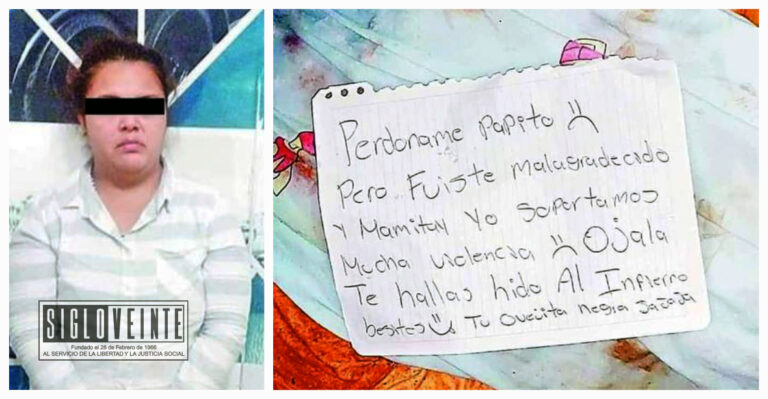 SIGLOVEINTE
Fundado el 28 de Febrero de 1966
AL SERVICIO DE LA LIBERTAD Y LA JUSTICIA SOCIAL
Perdoname Papito
Pero Fuiste malagradecido
y Mamitay Yo soportamos
Mucha violencia Ojala
Te hallas hido Al Infierno
besitos Tu Ovejita negra jajaja